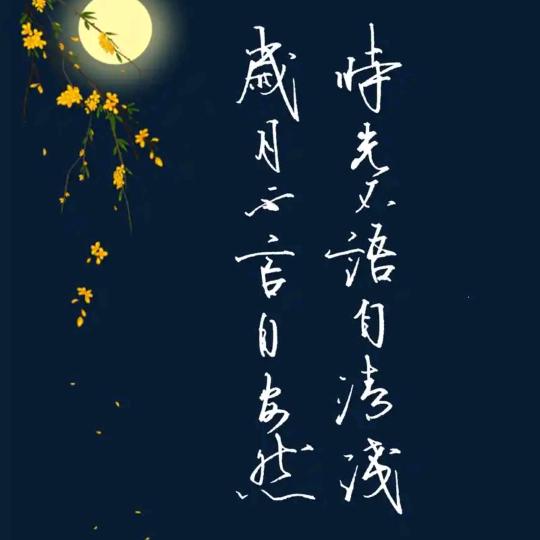 時光不語自清淺
歲月不言自安然